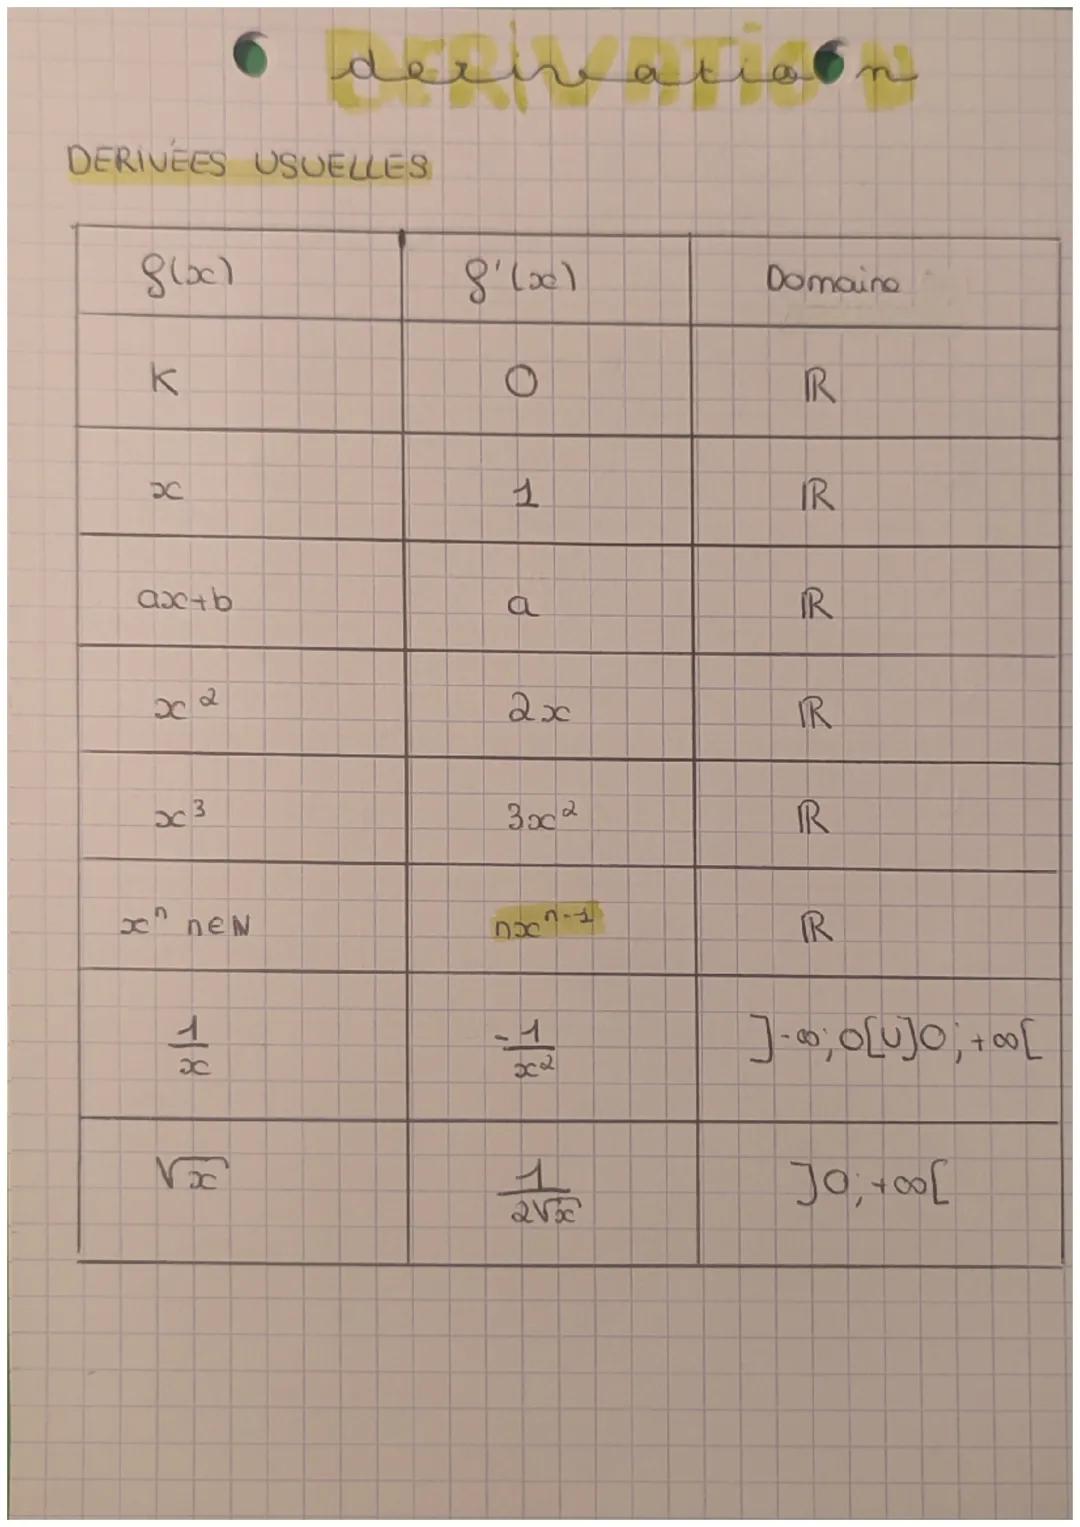 DERIVATION
derivation
DERIVÉES USUELLES
f(x) f'(x) Domaine
K 0 ℝ
x 1 ℝ
ax+b a ℝ
x² 2x ℝ
x³ 3x² ℝ
xⁿ n∈ℕ nxⁿ⁻¹ ℝ
1/x -1/x² ]-∞;0[U]0;+∞[
√x 1/2√x ]0;+∞[